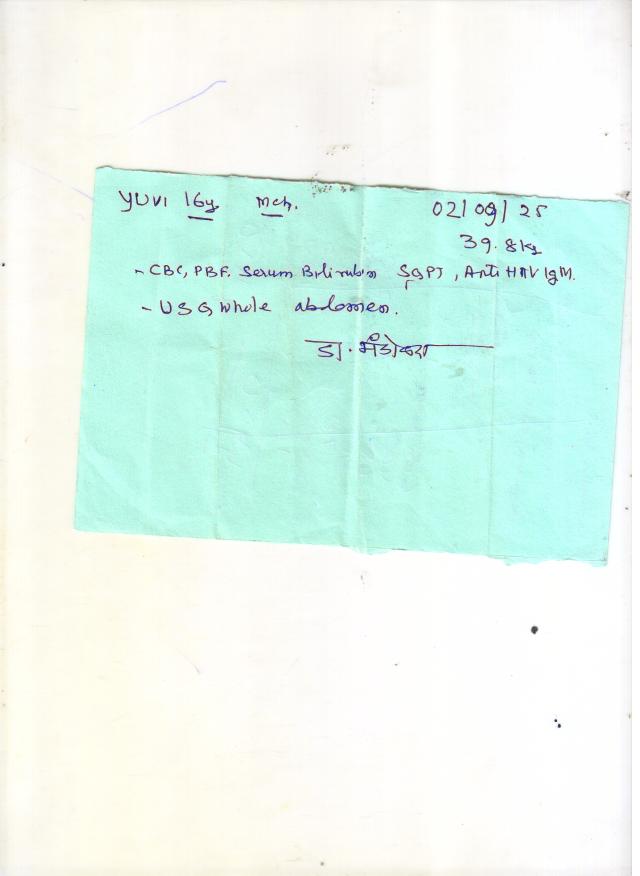 YUVI 16y. mch. 02/09/25
39.8kg
- CBC, PBF. Serum Bilirubin SGPT, Anti HAV IgM.
- USG whole abdomen.
डा.